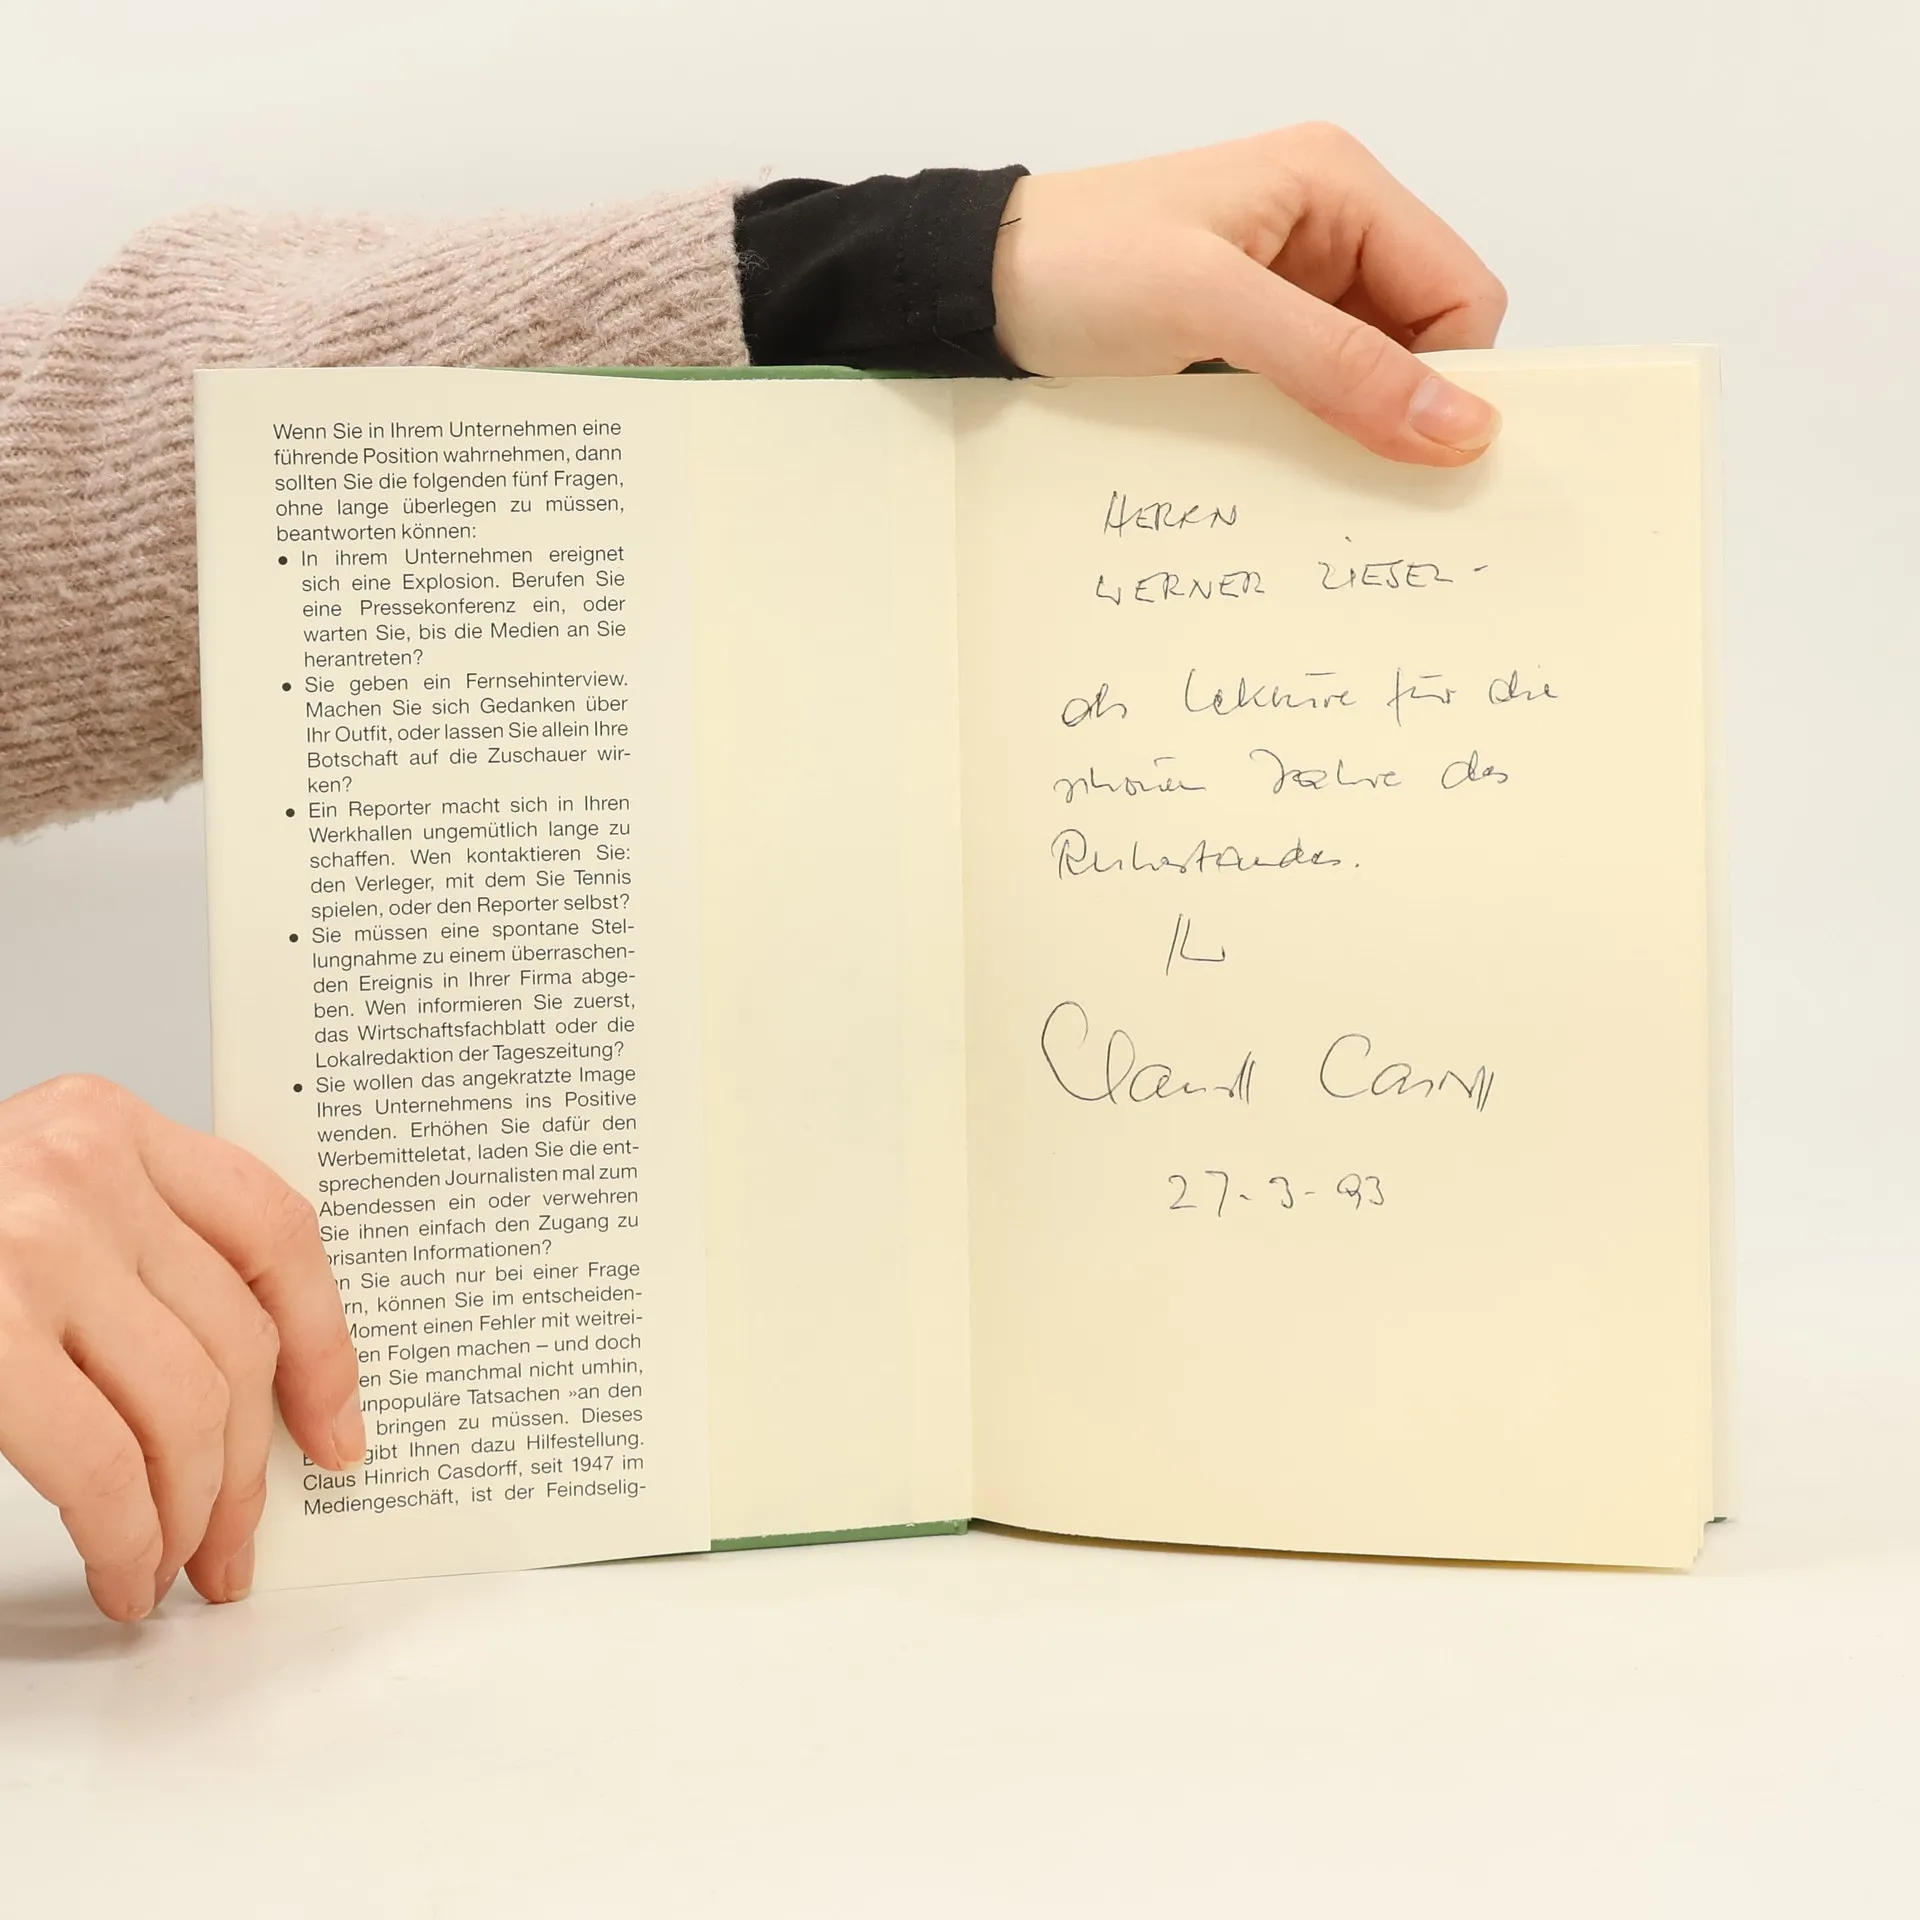 Wenn Sie in Ihrem Unternehmen eine
führende Position wahrnehmen, dann
sollten Sie die folgenden fünf Fragen,
ohne lange überlegen zu müssen,
beantworten können:
• In ihrem Unternehmen ereignet
sich eine Explosion. Berufen Sie
eine Pressekonferenz ein, oder
warten Sie, bis die Medien an Sie
herantreten?
• Sie geben ein Fernsehinterview.
Machen Sie sich Gedanken über
Ihr Outfit, oder lassen Sie allein Ihre
Botschaft auf die Zuschauer wir-
ken?
• Ein Reporter macht sich in Ihren
Werkhallen ungemütlich lange zu
schaffen. Wen kontaktieren Sie:
den Verleger, mit dem Sie Tennis
spielen, oder den Reporter selbst?
• Sie müssen eine spontane Stel-
lungnahme zu einem überraschen-
den Ereignis in Ihrer Firma abge-
ben. Wen informieren Sie zuerst,
das Wirtschaftsfachblatt oder die
Lokalredaktion der Tageszeitung?
• Sie wollen das angekratzte Image
Ihres Unternehmens ins Positive
wenden. Erhöhen Sie dafür den
Werbemitteletat, laden Sie die ent-
sprechenden Journalisten mal zum
Abendessen ein oder verwehren
Sie ihnen einfach den Zugang zu
brisanten Informationen?
Sie auch nur bei einer Frage
können Sie im entscheiden-
Moment einen Fehler mit weitrei-
Folgen machen – und doch
Sie manchmal nicht umhin,
unpopuläre Tatsachen »an den
bringen zu müssen. Dieses
gibt Ihnen dazu Hilfestellung.
Claus Hinrich Casdorff, seit 1947 im
Mediengeschäft, ist der Feindselig-
HERRN
WERNER ZIESEL -
als Lektüre für die
schönen Jahre des
Ruhestandes.
Ihr
Claus H Casdorff
27-3-93